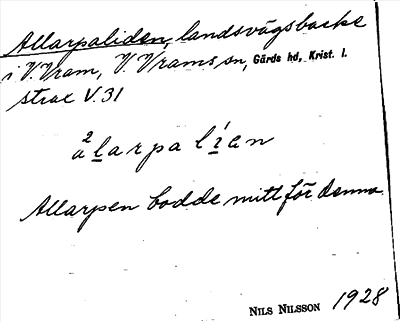 Allarpaliden, landsvägsbacke
i V. Vram, V. Vrams sn, Gärds hd, Krist. l.
strax V. 31
a²larpalíen
Allarpen bodde mitt för denna.
NILS NILSSON 1928